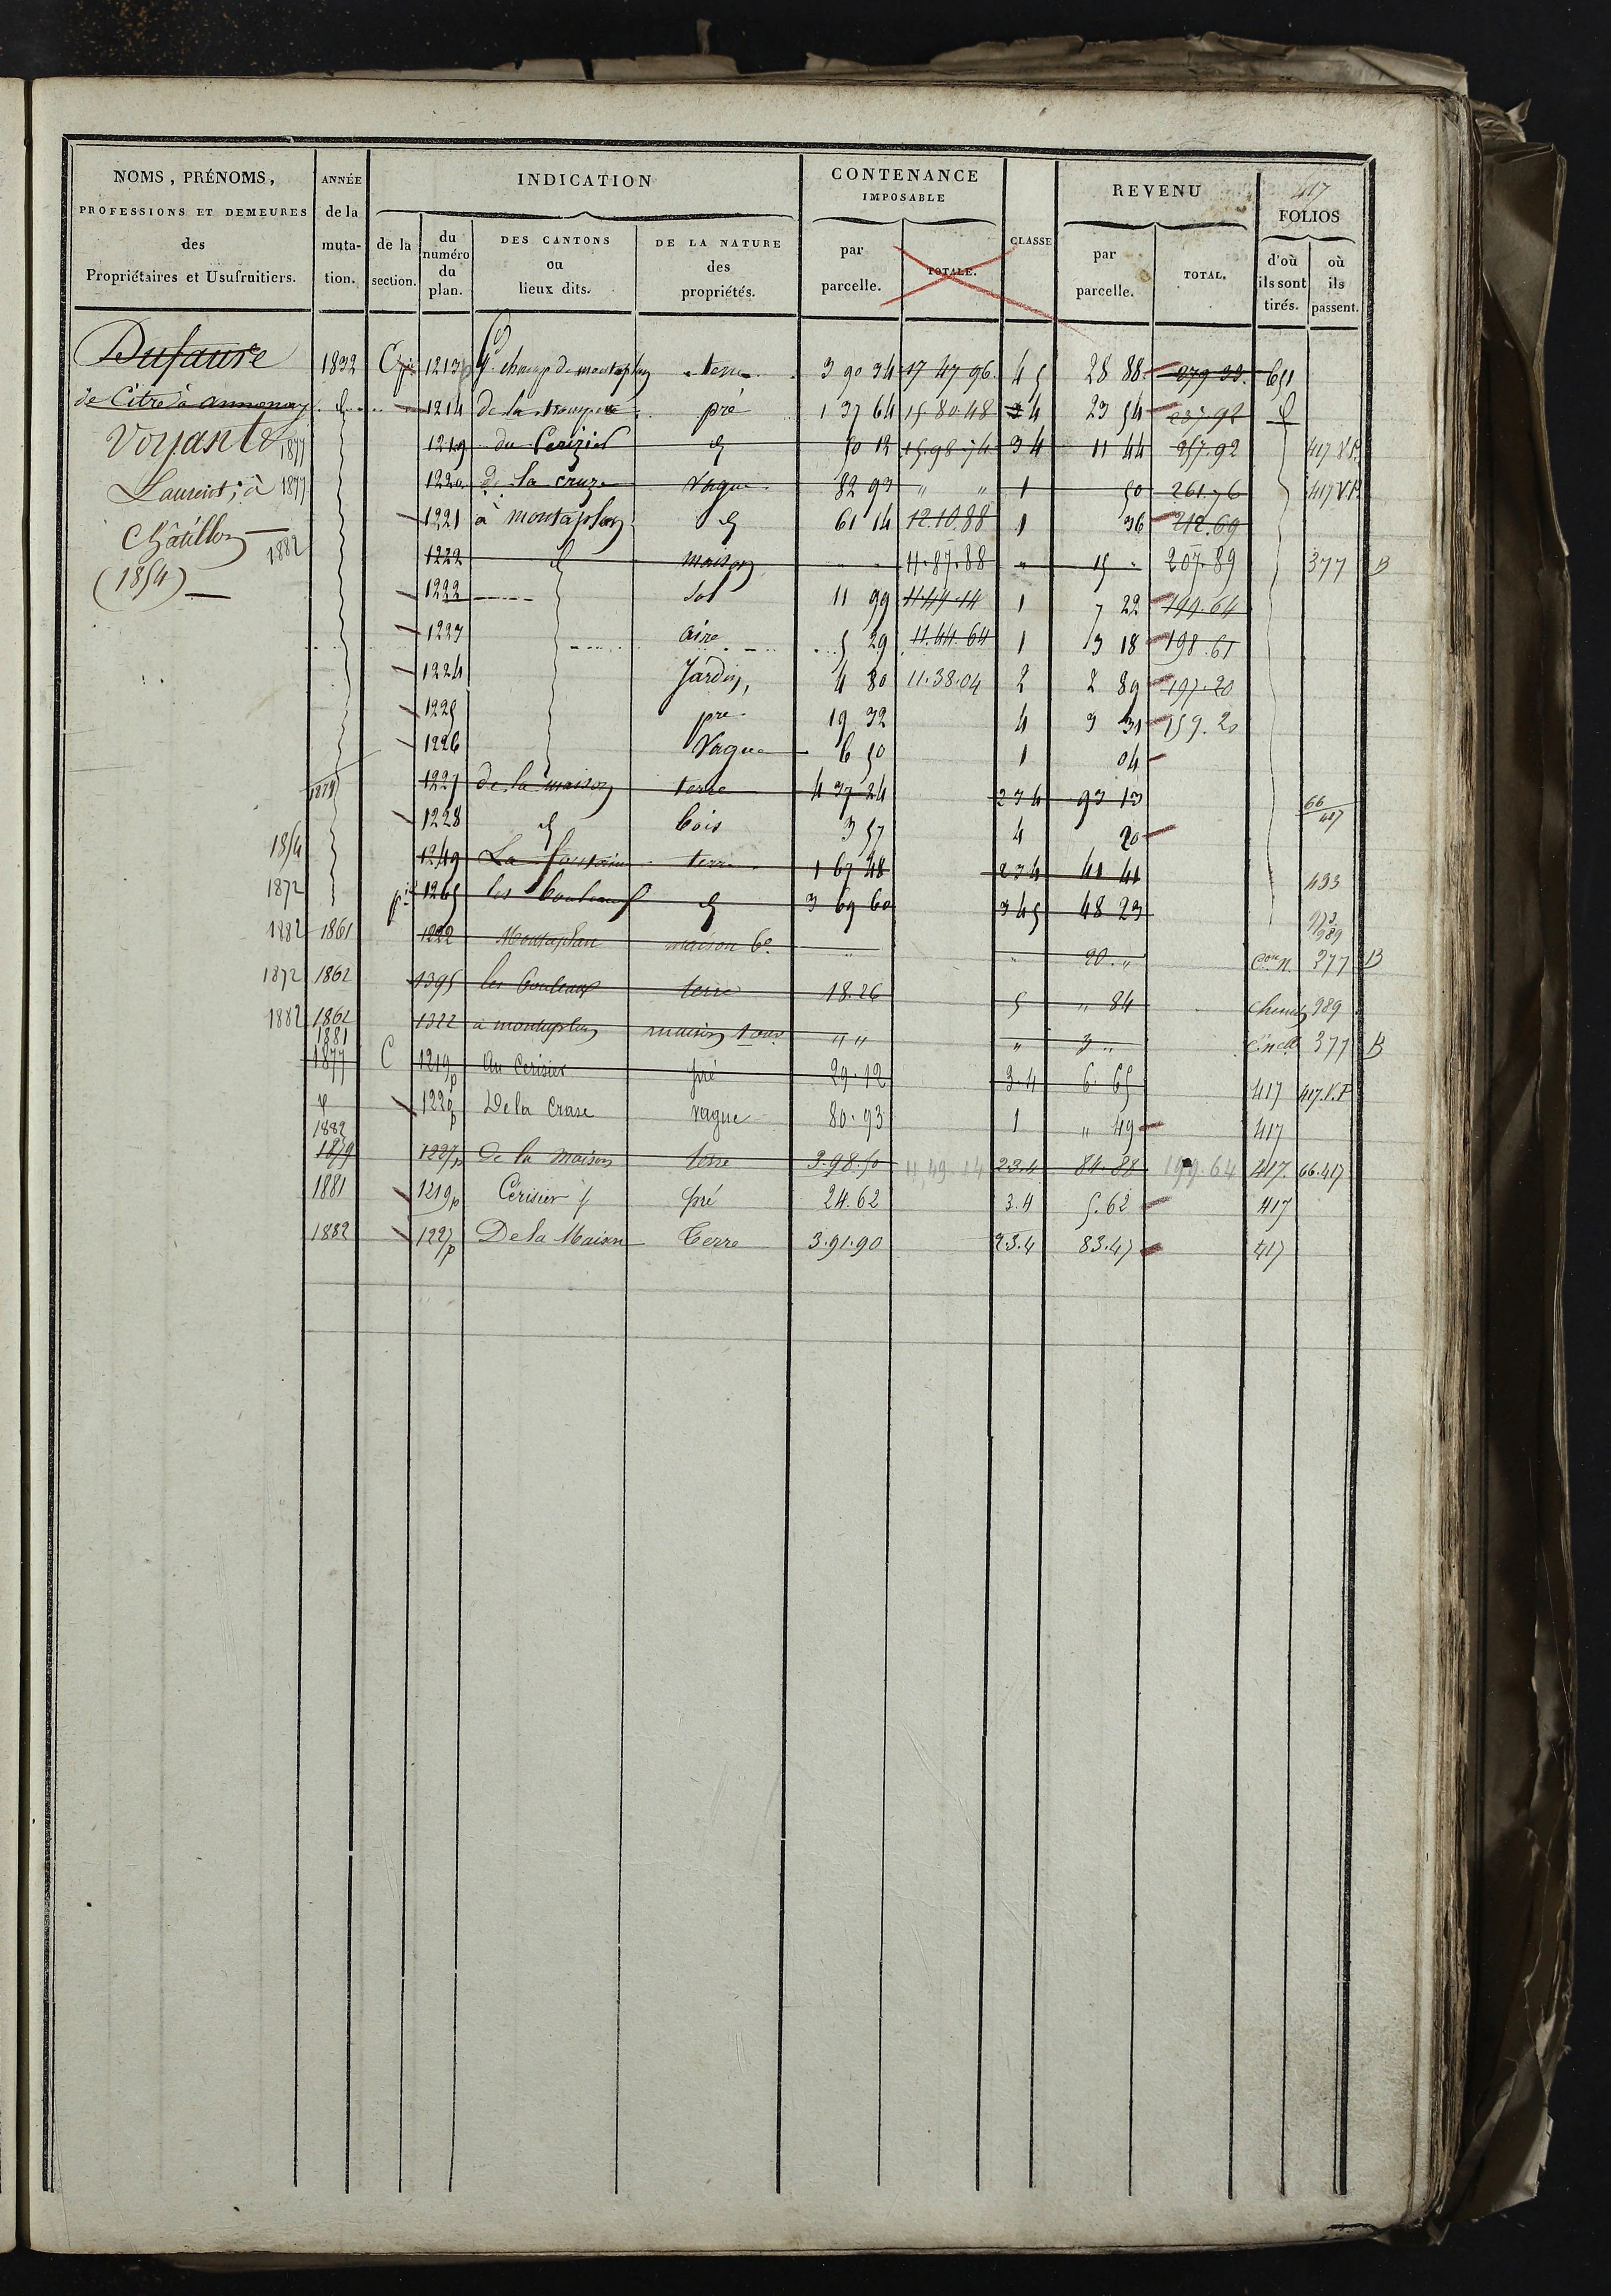 417
NOMS, PRÉNOMS, PROFESSIONS ET DEMEURES des Propriétaires et Usufruitiers.
ANNÉE de la mutation.
INDICATION
de la section.
du numéro du plan.
DES CANTONS ou lieux dits.
DE LA NATURE des propriétés.
CONTENANCE IMPOSABLE
par parcelle.
TOTALE.
CLASSE
REVENU
par parcelle.
TOTAL.
FOLIOS
d'où ils sont tirés.
où ils passent.
Dufaure
de Citre à annonay
Voyant
1877
Laurent, à 1877
Châtillon
1882
(1854)
1832 1213 champ de montaplan terre 3 90 34 17 47 96 4 5 28 88 279 33 651
1214 de la pré 1 37 64 15.80.48 4 23 54
1219 du Cerizier 50 12 15.98.74 3 4 11 44 257.92 417 V.P.
1220 de la cruze Vague 82 93 " " 1 50 261.76 417 V.P.
1221 à montaplan 61 14 12.10.88 1 36 212.69
1222 maison 11.87.88 " 15 207.89 377 B
1222 sol 11 99 11.49.14 1 7 22 199.64
1223 aire 5 29 11.44.64 1 3 18 198.61
1224 Jardin, 4 80 11.38.04 2 2 89 197.20
1225 pre 19 32 4 3 31 159.20
1226 Vague 6 50 1 04
1879 1227 de la maison terre 4 37 24 2 3 4 93 13 66/417
1228 bois 3 57 4 20
1854 1249 La fontaine terre 1 67 48 2 3 4 41 41 493
1872 1265 les bouleaux 3 69 60 3 4 5 48 23
1882 1861 1222 Montaplan maison " 20." 377 B
1872 1862 1395 les bouleaux terre 18.26 5 " 84 chemin 989
1882 1862 1322 à montaplan maison " " " 3 " 377 B
1881
1877 C 1219p Au Cerisier pré 29.12 3.4 6.65 417 417.V.P
1220p De la Crase vague 80.93 1 " 49 417
1882
1879 1227p De la Maison terre 3.98.50 11,49.14 2 3.4 84.88 199.64 417. 66.417
1881 1219p Cerisier pré 24.62 3.4 5.62 417
1882 1227p De la Maison Terre 3.91.90 2.3.4 83.47 417